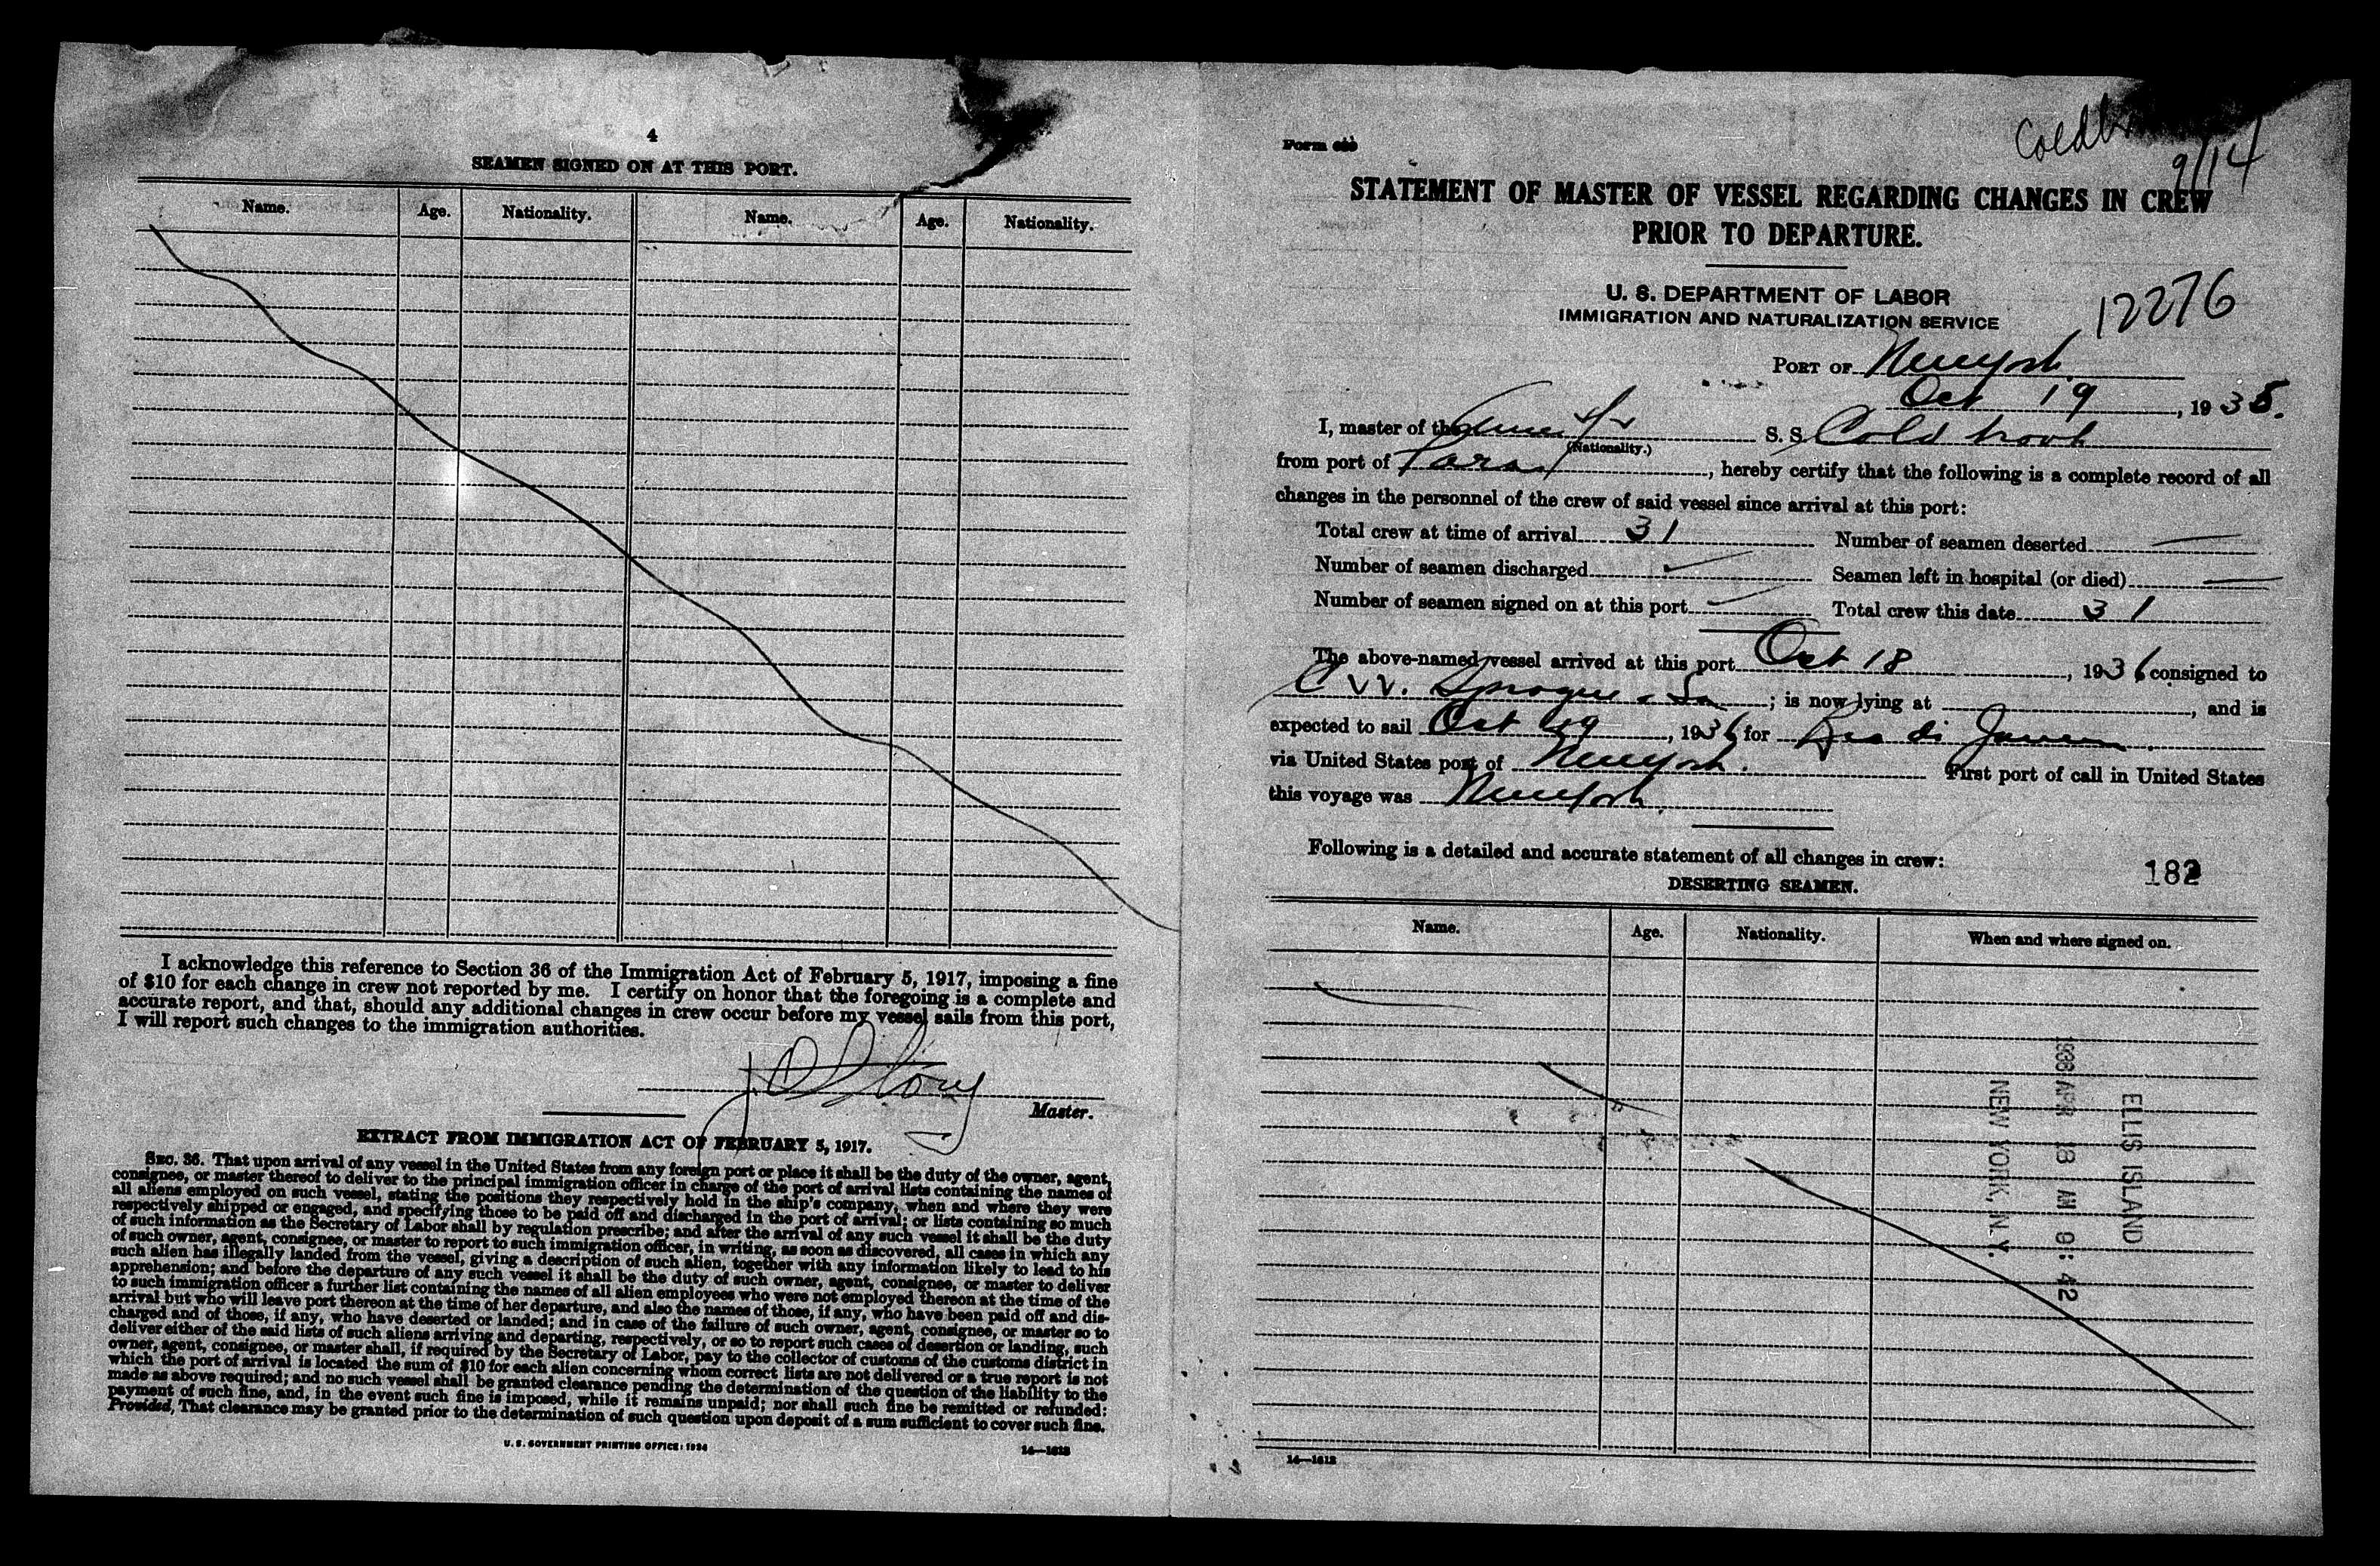 4
SEAMEN SIGNED ON AT THIS PORT.
Name. Age. Nationality. Name. Age. Nationality.
I acknowledge this reference to Section 36 of the Immigration Act of February 5, 1917, imposing a fine
of $10 for each change in crew not reported by me. I certify on honor that the foregoing is a complete and
accurate report, and that, should any additional changes in crew occur before my vessel sails from this port,
I will report such changes to the immigration authorities.
Master.
EXTRACT FROM IMMIGRATION ACT OF FEBRUARY 5, 1917.
SEC. 36. That upon arrival of any vessel in the United States from any foreign port or place it shall be the duty of the owner, agent,
consignee, or master thereof to deliver to the principal immigration officer in charge of the port of arrival lists containing the names of
all aliens employed on such vessel, stating the positions they respectively hold in the ship's company, when and where they were
respectively shipped or engaged, and specifying those to be paid off and discharged in the port of arrival; or lists containing so much
of such information as the Secretary of Labor shall by regulation prescribe; and after the arrival of any such vessel it shall be the duty
of such owner, agent, consignee, or master to report to such immigration officer, in writing, as soon as discovered, all cases in which any
such alien has illegally landed from the vessel, giving a description of such alien, together with any information likely to lead to his
apprehension; and before the departure of any such vessel it shall be the duty of such owner, agent, consignee, or master to deliver
to such immigration officer a further list containing the names of all alien employees who were not employed thereon at the time of the
arrival but who will leave port thereon at the time of her departure, and also the names of those, if any, who have been paid off and dis-
charged and of those, if any, who have deserted or landed; and in case of the failure of such owner, agent, consignee, or master so to
deliver either of the said lists of such aliens arriving and departing, respectively, or so to report such cases of desertion or landing, such
owner, agent, consignee, or master shall, if required by the Secretary of Labor, pay to the collector of customs of the customs district in
which the port of arrival is located the sum of $10 for each alien concerning whom correct lists are not delivered or a true report is not
made as above required; and no such vessel shall be granted clearance pending the determination of the question of the liability to the
payment of such fine, and, in the event such fine is imposed, while it remains unpaid; nor shall such fine be remitted or refunded:
Provided, That clearance may be granted prior to the determination of such question upon deposit of a sum sufficient to cover such fine.
U. S. GOVERNMENT PRINTING OFFICE: 1934 14—1613
Form
9/14
STATEMENT OF MASTER OF VESSEL REGARDING CHANGES IN CREW
PRIOR TO DEPARTURE.
U. S. DEPARTMENT OF LABOR
IMMIGRATION AND NATURALIZATION SERVICE
12276
PORT OF New York
Oct 19, 1935.
I, master of the S. S. Cold brook
(Nationality.)
from port of Para, hereby certify that the following is a complete record of all
changes in the personnel of the crew of said vessel since arrival at this port:
Total crew at time of arrival 31 Number of seamen deserted —
Number of seamen discharged Seamen left in hospital (or died) —
Number of seamen signed on at this port Total crew this date 31
The above-named vessel arrived at this port Oct 18, 1936 consigned to
C W. Sprague & Son; is now lying at , and is
expected to sail Oct 19, 1936 for Rio di
via United States port of New York. First port of call in United States
this voyage was New York.
Following is a detailed and accurate statement of all changes in crew:
182
DESERTING SEAMEN.
Name. Age. Nationality. When and where signed on.
ELLIS ISLAND
1936 APR 18 AM 9:42
NEW YORK, N.Y.
14—1613